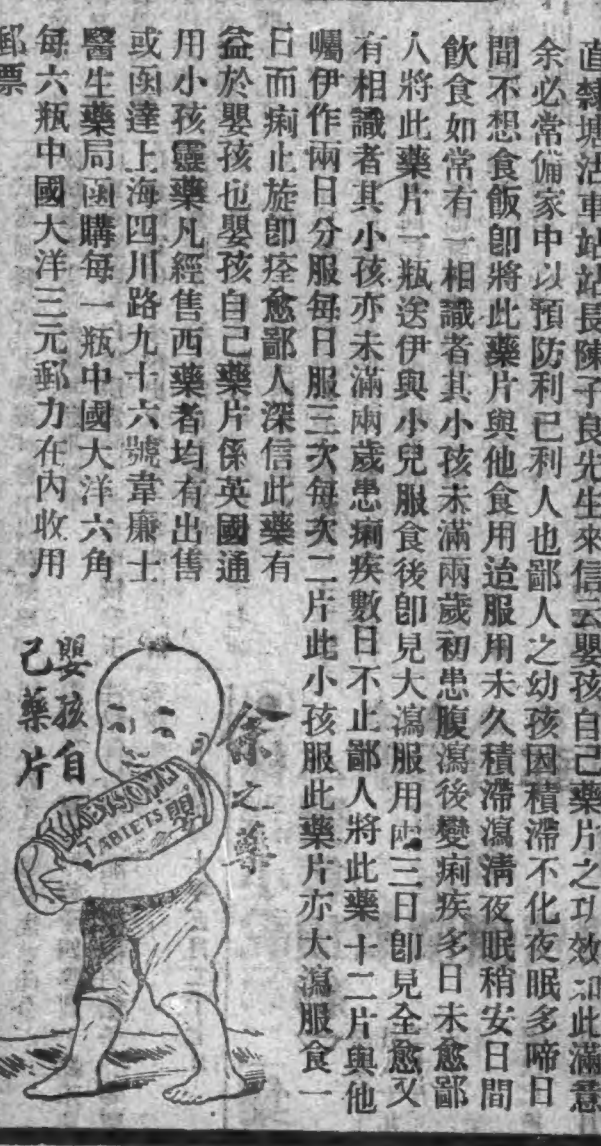 直隸塘沽車站站長陳子良先生來信云嬰孩自己藥片之功效如此滿意
余必常備家中以預防利己利人也鄙人之幼孩因積滯不化夜眠多啼日
間不想食飯卽將此藥片與他食用迨服用未久積滯瀉清夜眠稍安日間
飲食如常有一相識者其小孩未滿兩歲初患腹瀉後變痢疾多日未愈鄙
人將此藥片一瓶送伊與小兒服食後卽見大瀉服用兩三日卽見全愈又
有相識者其小孩亦未滿兩歲患痢疾數日不止鄙人將此藥十二片與他
囑伊作兩日分服每日服三次每次二片此小孩服此藥片亦大瀉服食一
日而痢止旋卽痊愈鄙人深信此藥有
益於嬰孩也嬰孩自己藥片係英國通
用小孩靈藥凡經售西藥者均有出售
或函達上海四川路九十六號韋廉士
醫生藥局函購每一瓶中國大洋六角
每六瓶中國大洋三元郵力在內收用
郵票
余之藥
嬰孩自
己藥片
BABY'S OWN
TABLETS 嬰